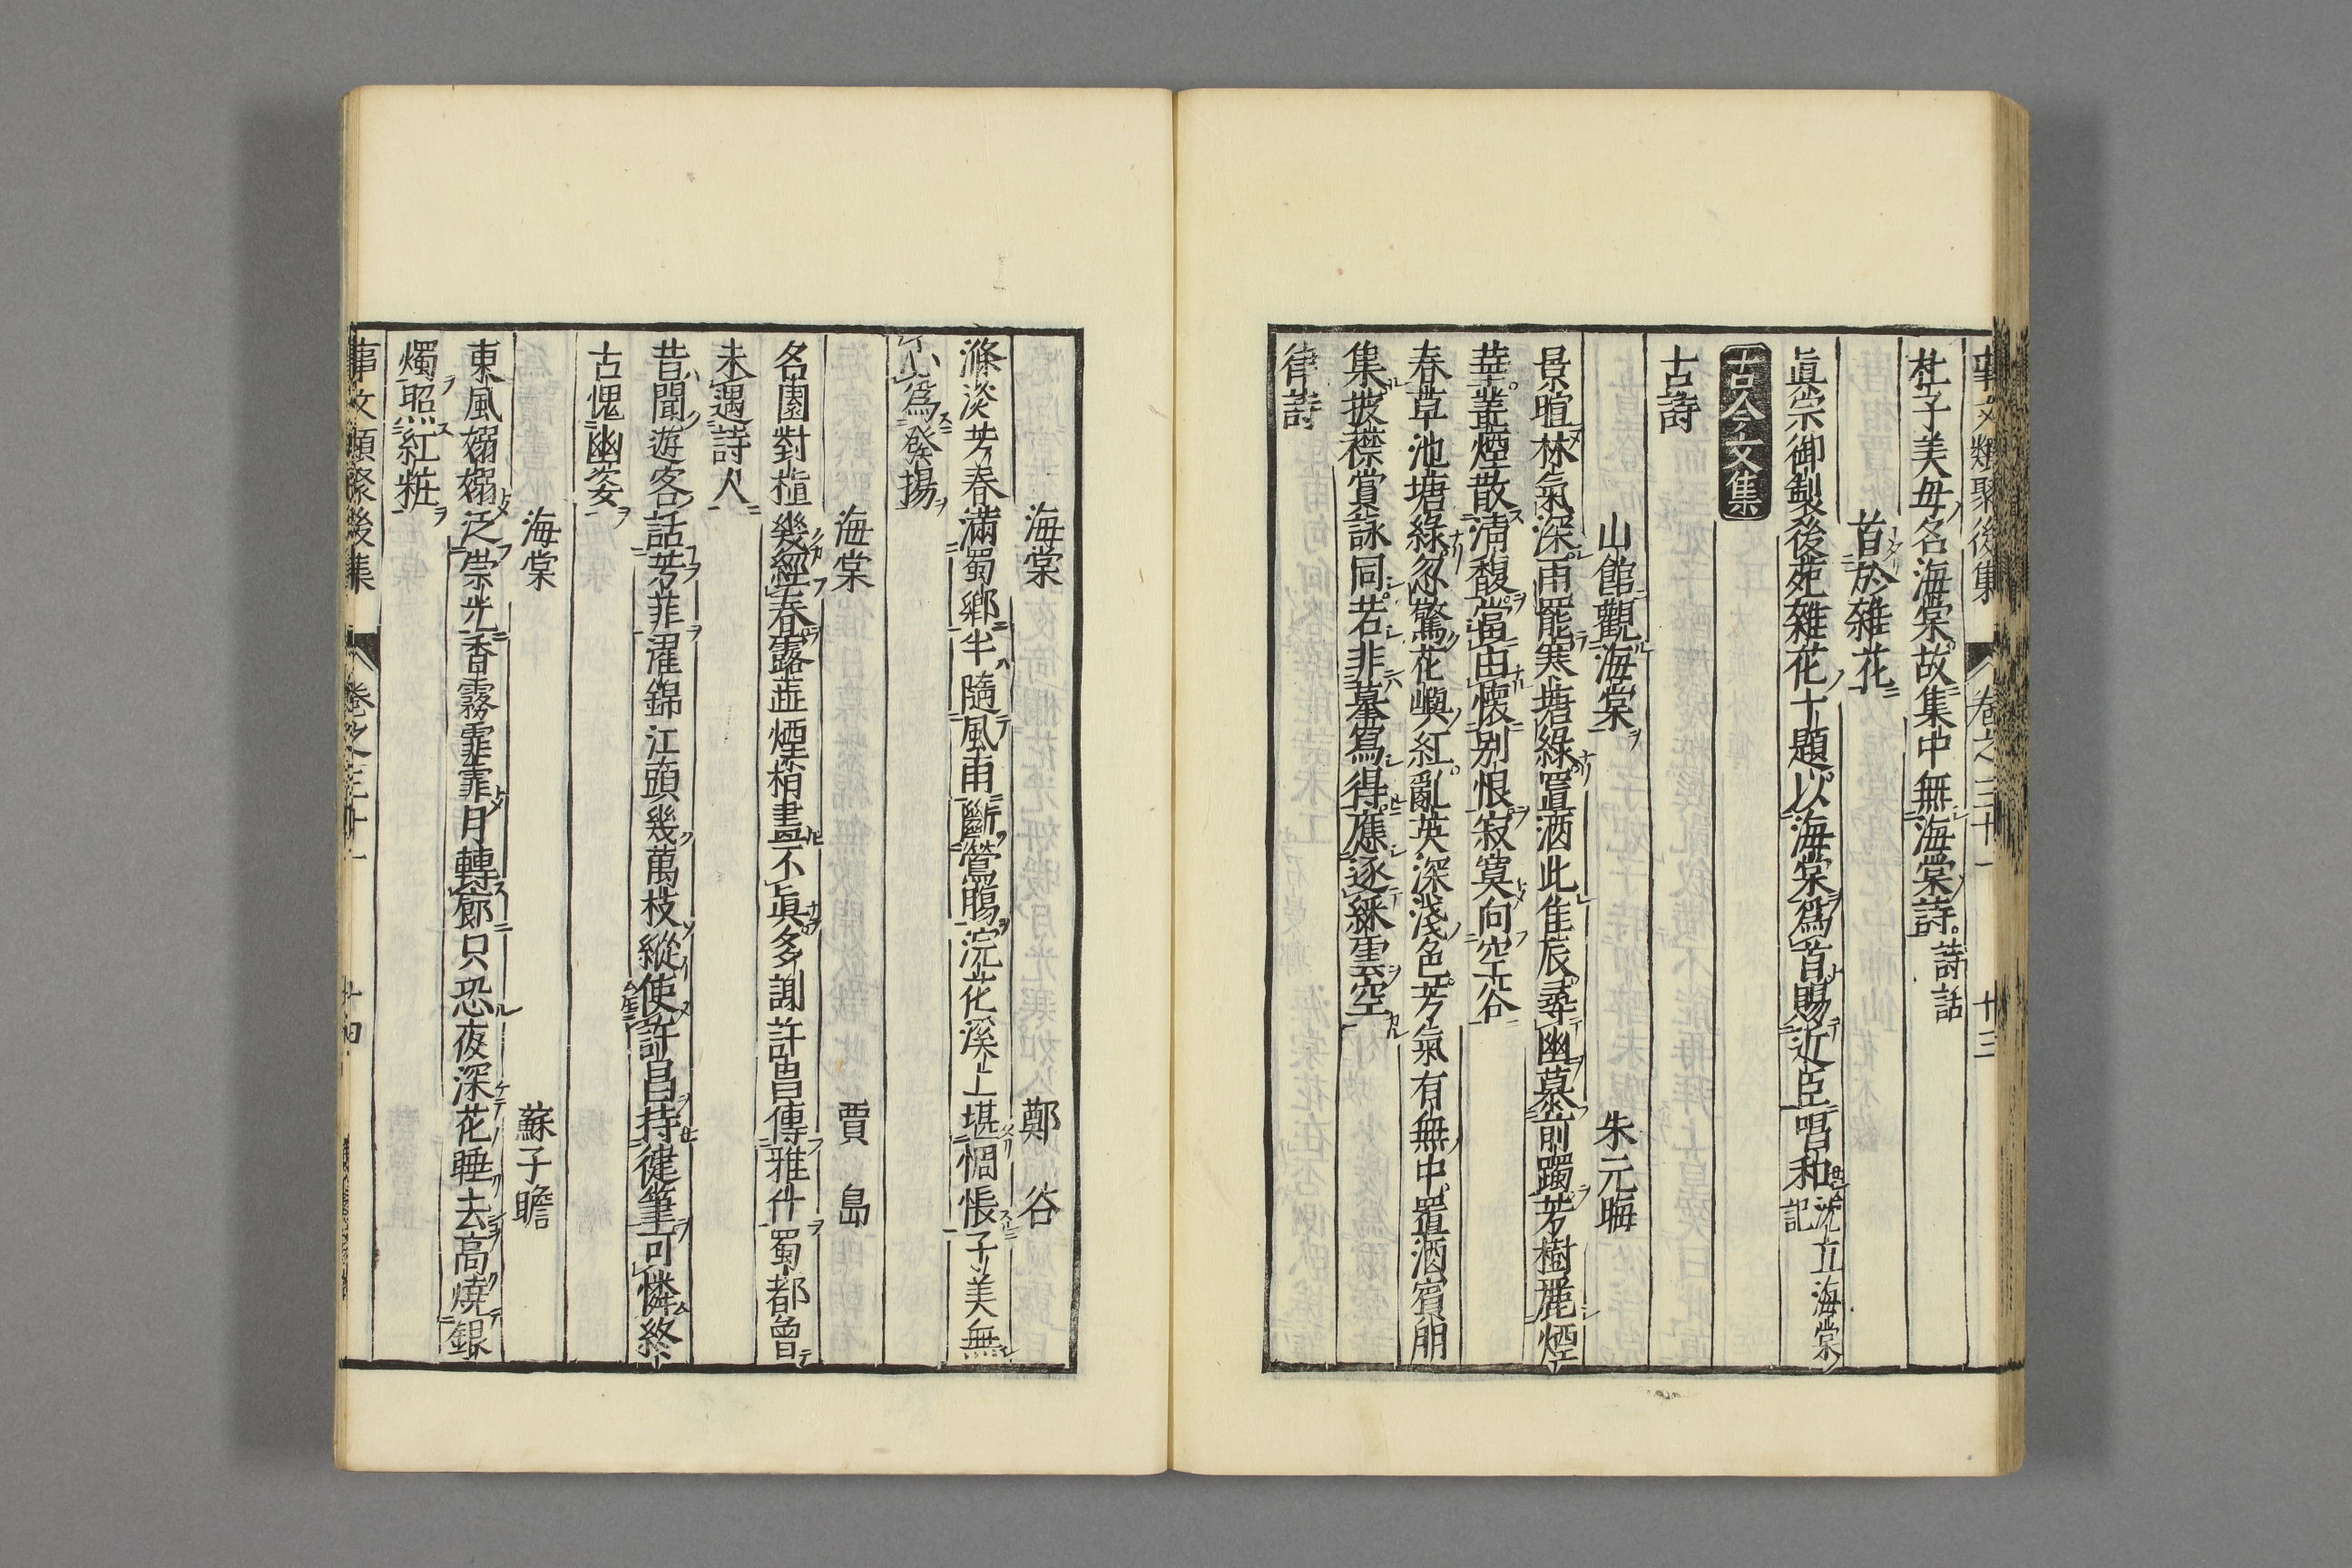 事文類聚後集 卷之三十一 十三
杜子美母名海棠故集中無海棠詩 詩話
首於雜花
眞宗御製後苑雜花十題以海棠爲首賜近臣唱和 沈立海棠記
古今文集
古詩
山館觀海棠 朱元晦
景暄林氣深雨罷寒塘綠置酒此佳辰尋幽慕前躅芳樹麗煙
華叢煙散清馥當由懷別恨寂寞向空谷
春草池塘綠忽驚花嶼紅亂英深淺色芳氣有無中置酒賓朋
集披襟賞詠同若非摹寫得應逐綵雲空
律詩
海棠 鄭谷
滌淡芳春滿蜀鄉半隨風雨斷鶯腸浣花溪上堪惆悵子美無
心爲發揚
海棠 賈島
名園對植幾經春露蘂煙梢畫不眞多謝許昌傳雅什蜀都曾
未遇詩人
昔聞遊客話芳菲濯錦江頭幾萬枝縱使許昌持健筆可憐終
古愧幽姿
海棠 蘇子瞻
東風嫋嫋泛崇光香霧霏霏月轉廊只恐夜深花睡去高燒銀
燭照紅粧
事文類聚後集 卷之三十一 十四